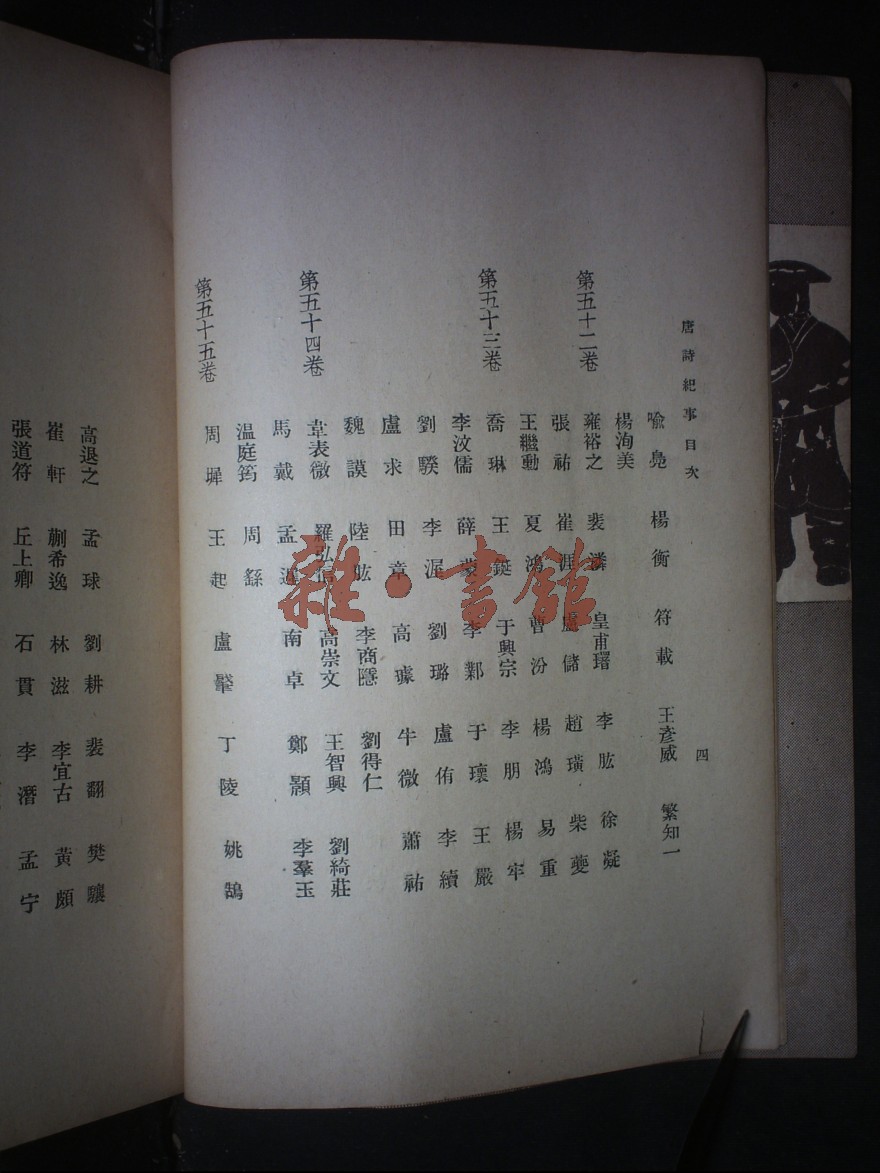 唐詩紀事目次 四
喻鳧 楊衡 符載 王彥威 繁知一
楊洵美
第五十二卷 雍裕之 裴潾 皇甫 李肱 徐凝
張祐 崔涯 盧儲 趙璜 柴夔
王繼勳 夏鴻 曹汾 楊鴻 易重
第五十三卷 喬琳 王鋋 于興宗 李朋 楊牢
李汶儒 薛蒙 李鄴 于瓌 王嚴
劉騤 李渥 劉璐 盧侑 李續
盧求 田章 高璩 牛微 蕭祐
魏謨 陸肱 李商隱 劉得仁
第五十四卷 韋表微 羅弘信 高崇文 王智興 劉綺莊
馬戴 孟遲 南卓 鄭顥 李羣玉
温庭筠 周繇
第五十五卷 周墀 王起 盧肇 丁陵 姚鵠
高退之 孟球 劉耕 裴翻 樊驤
崔軒 蒯希逸 林滋 李宜古 黃頗
張道符 丘上卿 石貫 李潛 孟宁
雜·書館